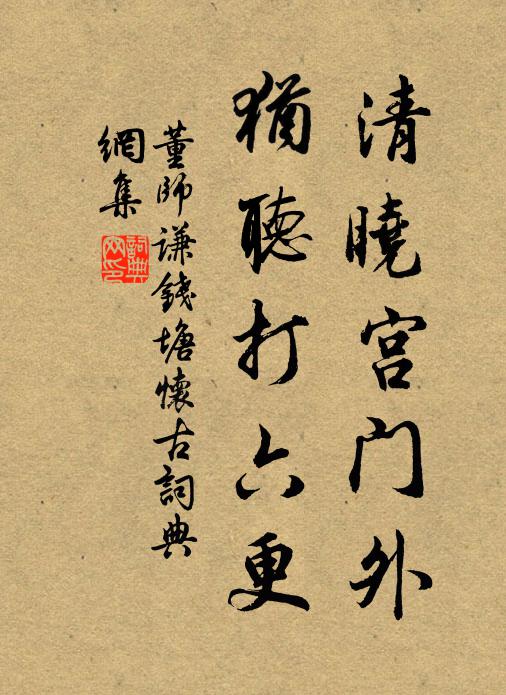 清曉宮門外
猶聽打六更
董師謙錢塘懷古詞典
網集
詞典
網印